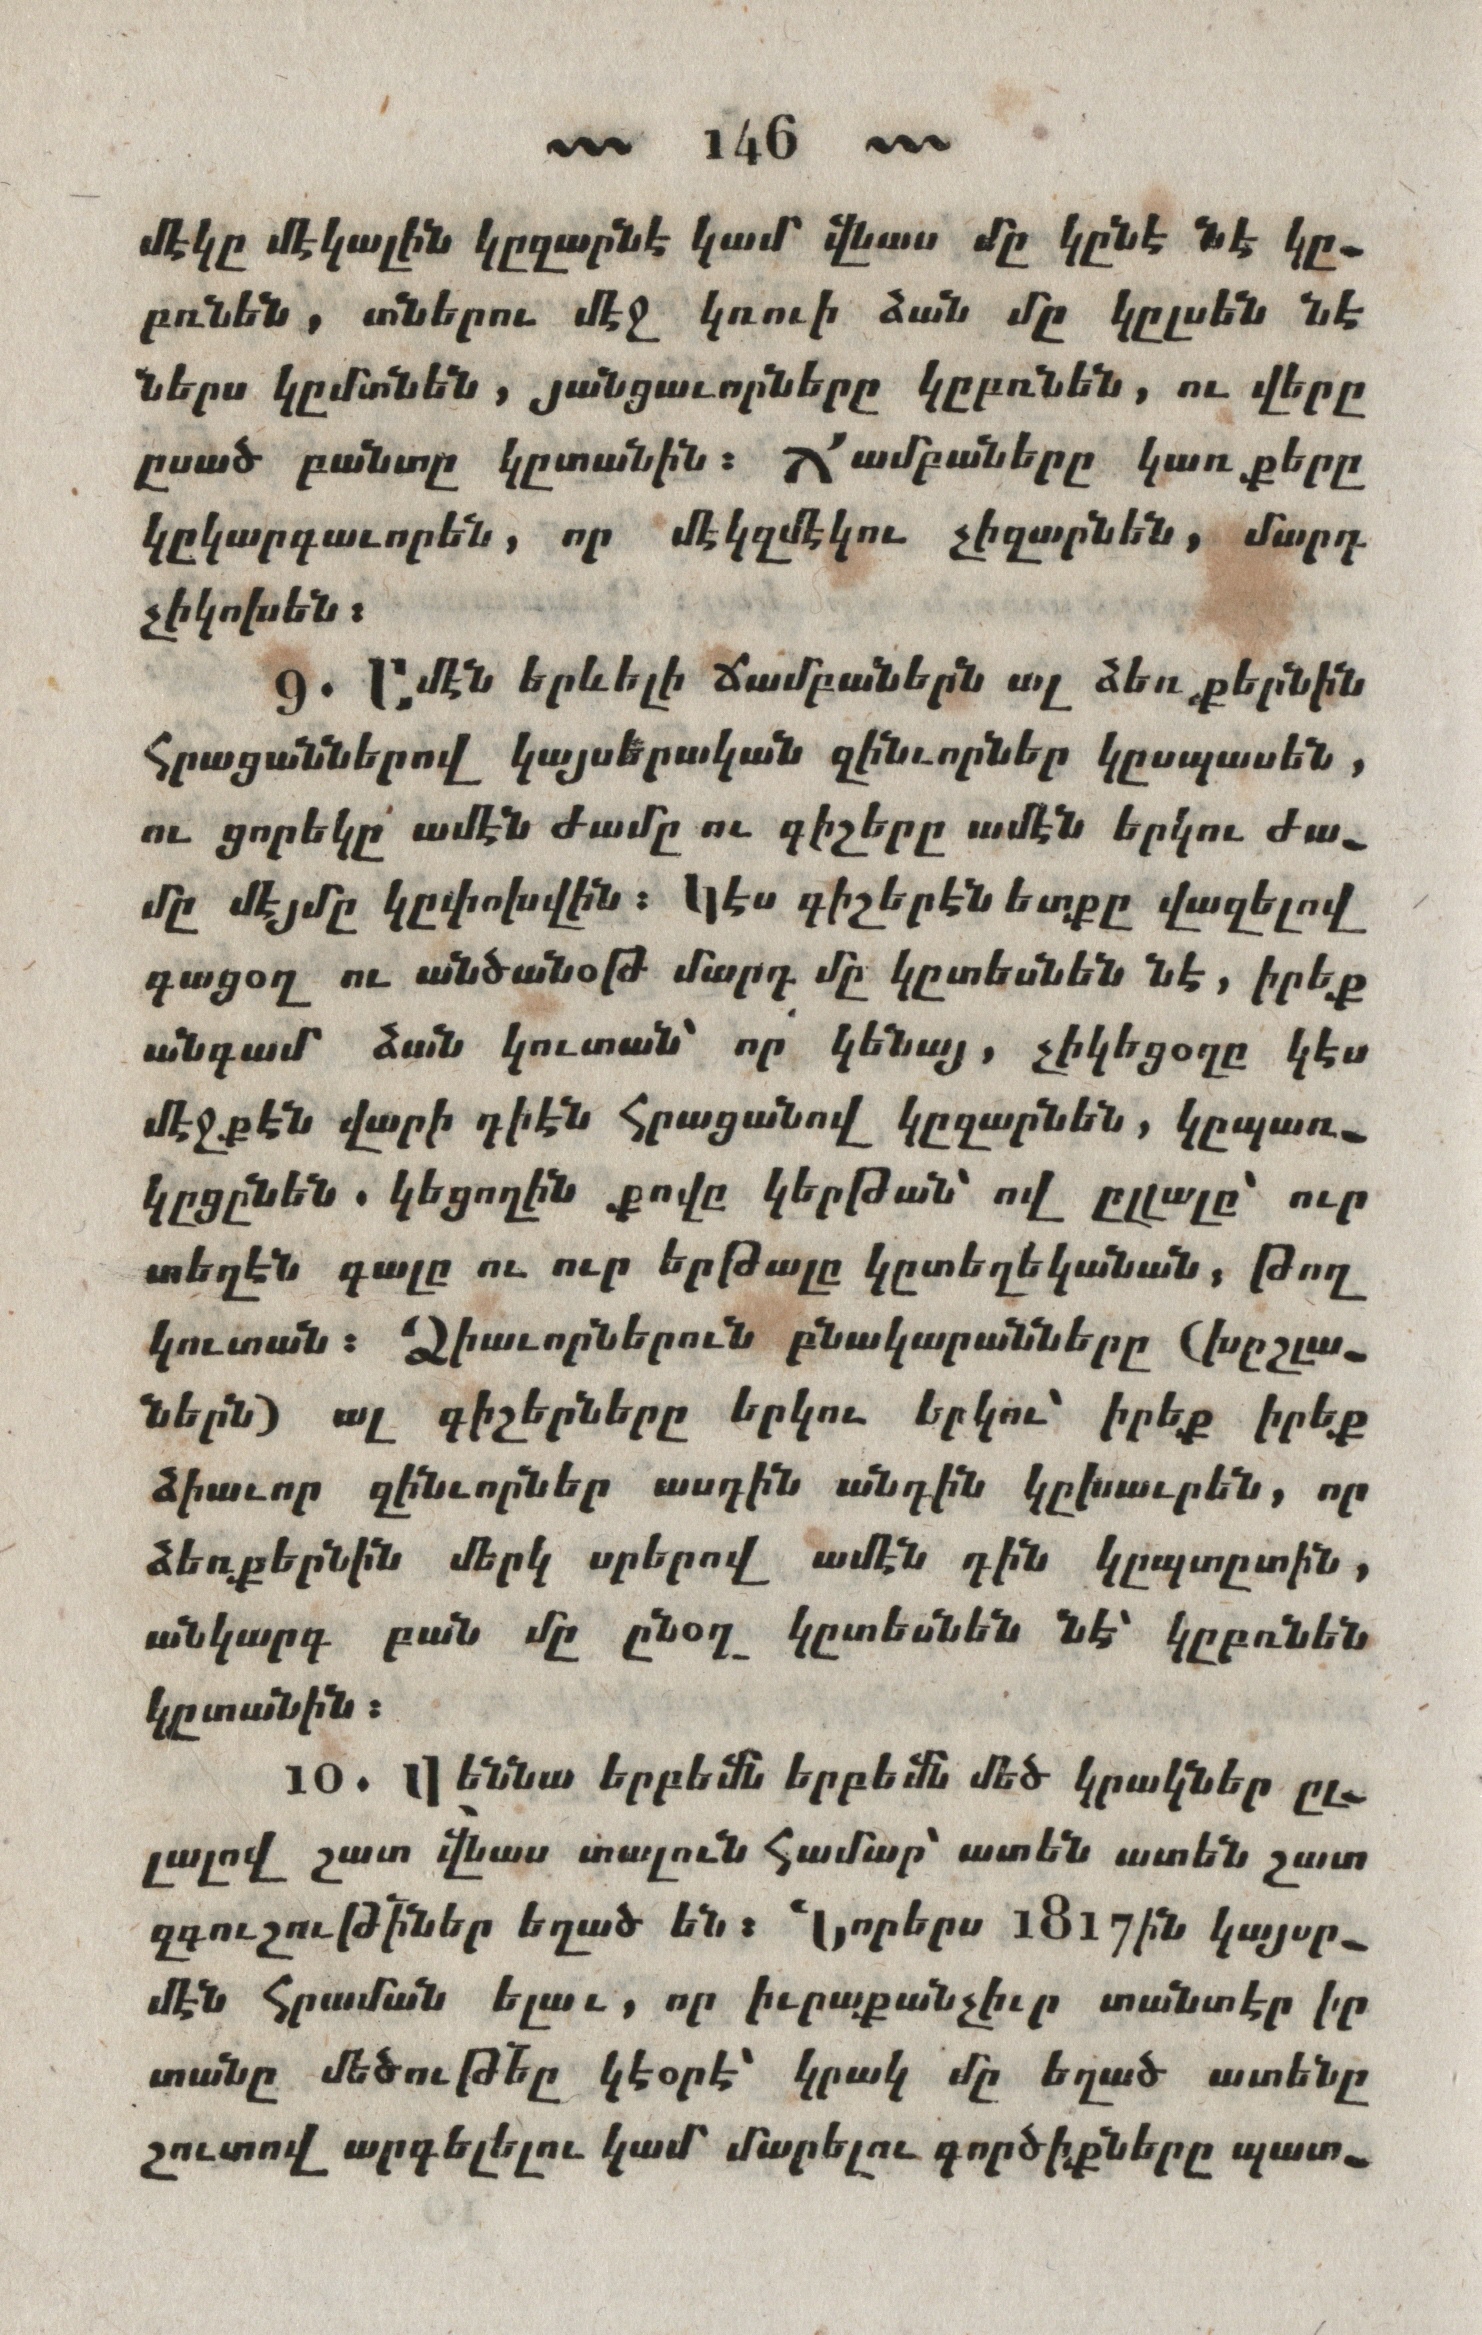 146
մէկը մէկալին կըզարնէ կամ վնաս մը կընէ նէ կը-
բռնեն, տներու մէջ կռուի ձան մը կըլսեն նէ
ներս կըմտնեն, յանցաւորները կըբռնեն, ու վերը
ըսած բանտը կըտանին։ Ճամբաները կառքերը
կըկարգաւորեն, որ մէկզմէկու չիզարնեն, մարդ
չիկոխեն։
9. Ամէն երևելի ճամբաներն ալ ձեռքերնին
հրացաններով կայսերական զինւորներ կըսպասեն,
ու ցորեկը ամէն ժամը ու գիշերը ամէն երկու ժա-
մը մէյմը կըփոխվին։ Կէս գիշերէն ետքը վազելով
գացօղ ու անծանօթ մարդ մը կըտեսնեն նէ, իրեք
անգամ ձան կուտան՝ որ կենայ, չիկեցօղը կէս
մէջքէն վարի դիէն հրացանով կըզարնեն, կըպառ-
կըցընեն. կեցողին քովը կերթան՝ ով ըլլալը՝ ուր
տեղէն գալը ու ուր երթալը կըտեղեկանան, թող
կուտան։ Ձիաւորներուն բնակարանները (խըշլա-
ներն) ալ գիշերները երկու երկու՝ իրեք իրեք
ձիաւոր զինւորներ ասդին անդին կըխաւրեն, որ
ձեռքերնին մերկ սրերով ամէն դին կըպտըտին,
անկարգ բան մը ընօղ կըտեսնեն նէ՝ կըբռնեն
կըտանին։
10. Վեննա երբեմն երբեմն մեծ կրակներ ըլ-
լալով շատ վնաս տալուն համար՝ ատեն ատեն շատ
զգուշութիներ եղած են։ Նորերս 1817ին կայսր-
մէն հրաման ելաւ, որ իւրաքանչիւր տանտէր իր
տանը մեծութեը կէօրէ՝ կրակ մը եղած ատենը
շուտով արգելելու կամ մարելու գործիքները պատ-